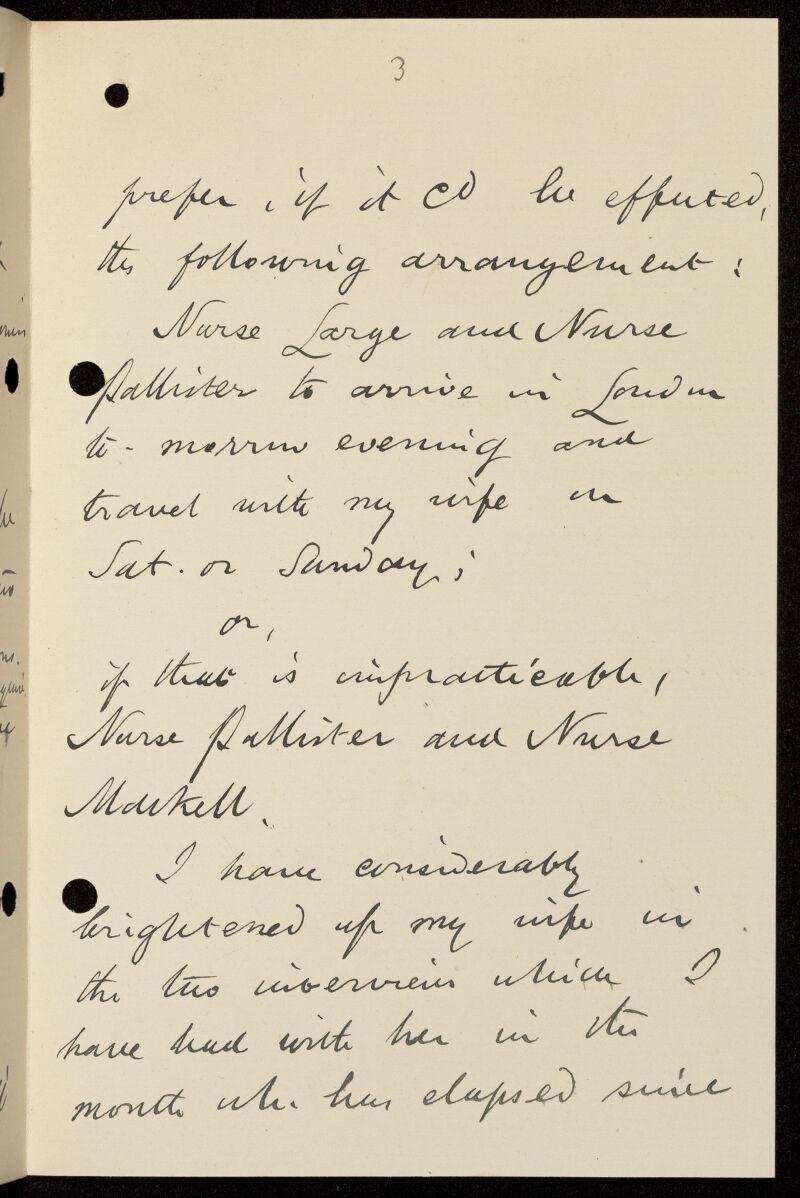 3
prefer, if it cd be effected,
the following arrangement:
Nurse Large and Nurse
Pallister to arrive in London
to-morrow evening and
travel with my wife on
Sat. or Sunday;
or,
if that is impracticable,
Nurse Pallister and Nurse
Maskell.
I have considerably
brightened up my wife in
the two interviews which I
have had with her in the
month wh. has elapsed since